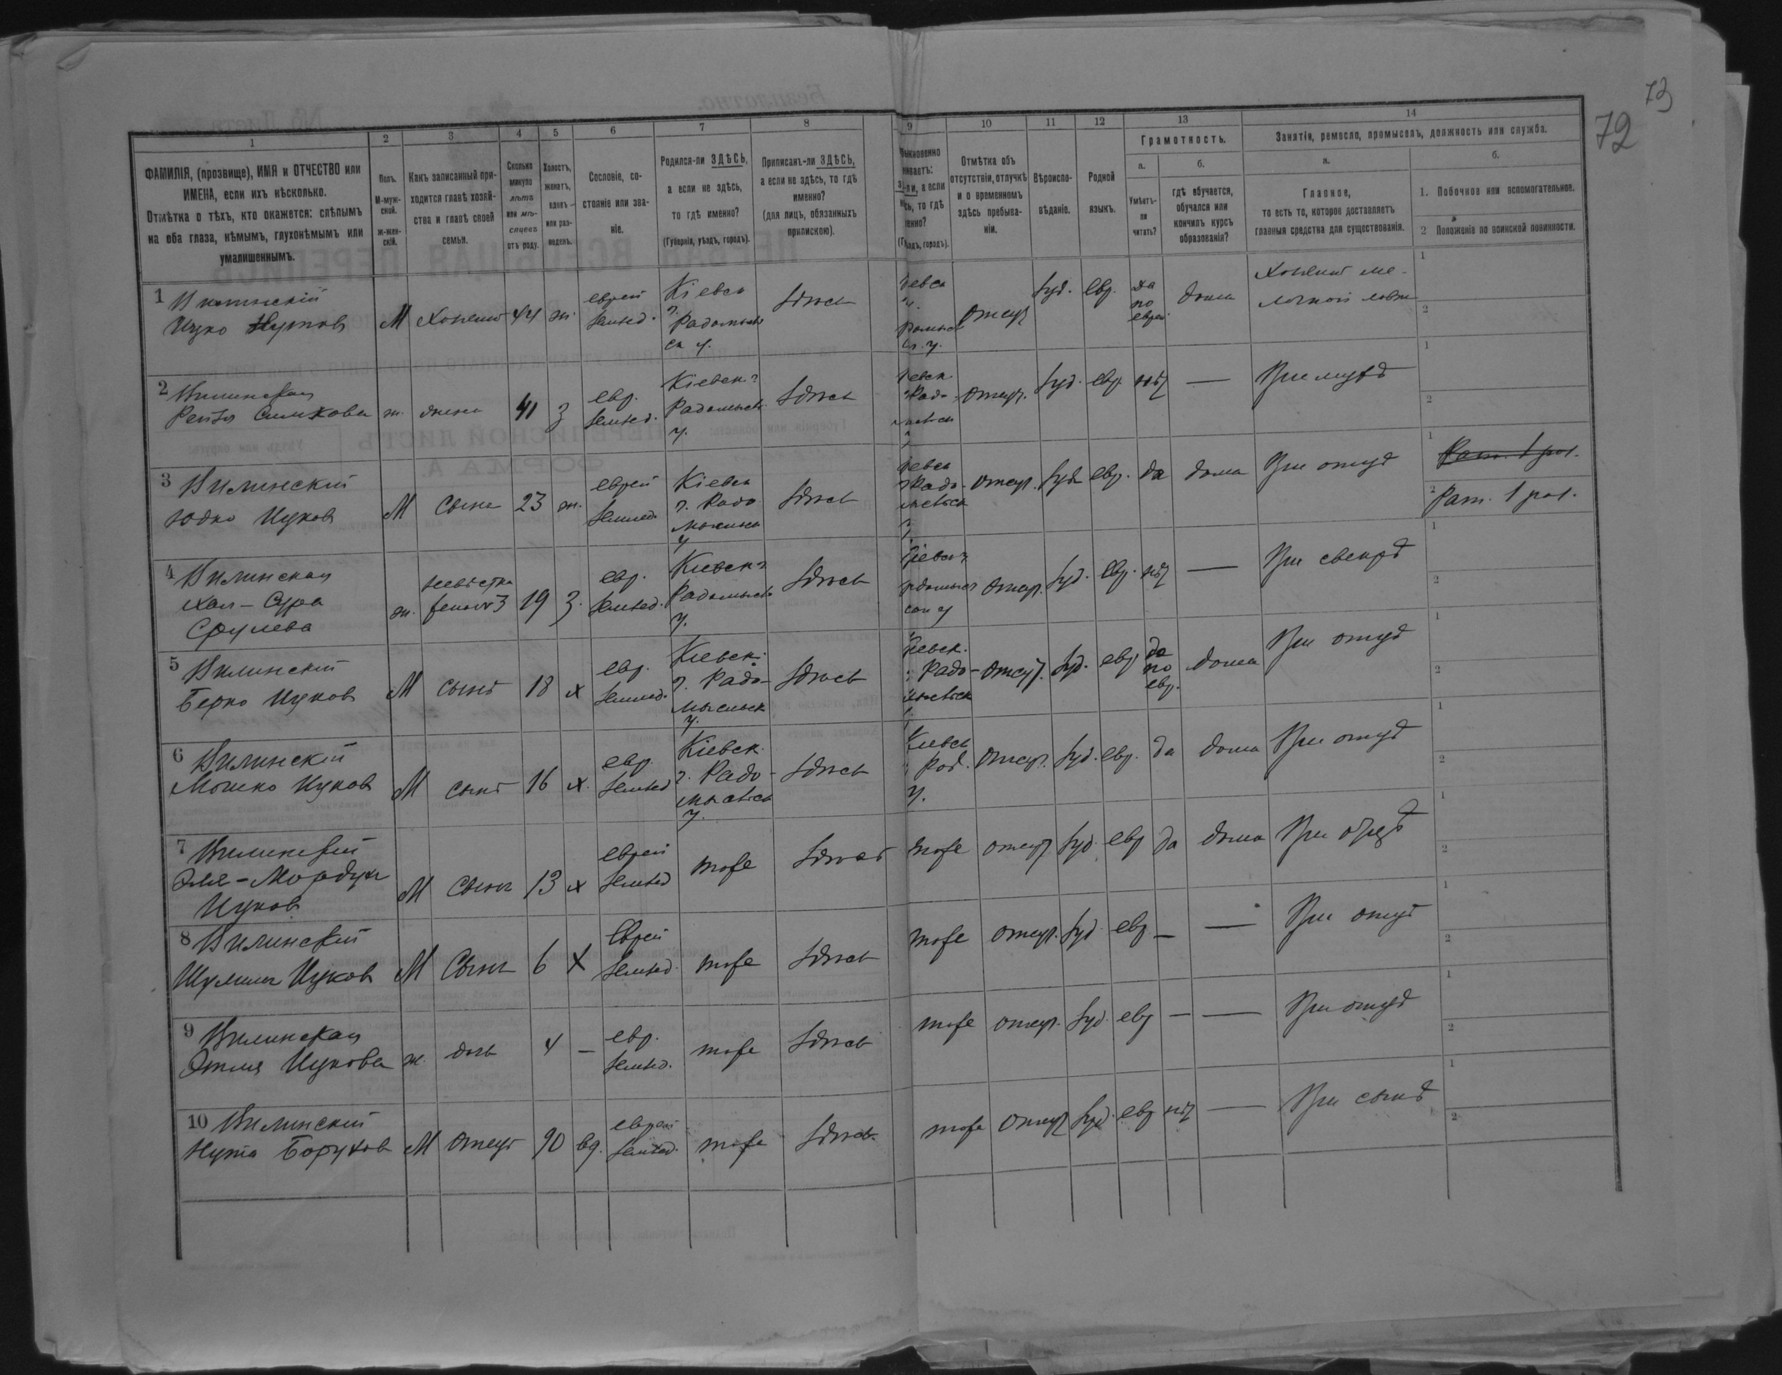 73
72
1
2
3
4
5
6
7
8
9
10
11
12
13
14
ФАМИЛІЯ, (прозвище), ИМЯ и ОТЧЕСТВО или
ИМЕНА, если ихъ нѣсколько.
Отмѣтка о тѣхъ, кто окажется: слѣпымъ
на оба глаза, нѣмымъ, глухонѣмымъ или
умалишеннымъ.
Полъ.
М-муж-
ской.
ж-жен-
скій.
Какъ записанный при-
ходится главѣ хозяй-
ства и главѣ своей
семьи.
Сколько
минуло
лѣтъ
или мѣ-
сяцевъ
отъ роду.
Холостъ,
женатъ,
вдовъ
или раз-
веденъ.
Сословіе, со-
стояніе или зва-
ніе.
Родился-ли ЗДѢСЬ,
а если не здѣсь,
то гдѣ именно?
(Губернія, уѣздъ, городъ).
Приписанъ-ли ЗДѢСЬ,
а если не здѣсь, то гдѣ
именно?
(для лицъ, обязанныхъ
припискою).
Отмѣтка объ
отсутствіи, отлучкѣ
и о временномъ
здѣсь пребыва-
ніи.
Вѣроиспо-
вѣданіе.
Родной
языкъ.
Грамотность.
а.
Умѣетъ-
ли
читать?
б.
гдѣ обучается,
обучался или
кончилъ курсъ
образованія?
Занятіе, ремесло, промыселъ, должность или служба.
а.
Главное,
то есть то, которое доставляетъ
главныя средства для существованія.
б.
1. Побочное или вспомогательное.
2 Положеніе по воинской повинности.
1 Вилинскій
Ицко Нутовъ
М Хозяинъ 44 ж. еврей землед. Кіевск г. Радомысльск у. здѣсь
отсут іуд. евр. да по еврей. дома Хозяинъ
2 Вилинская
Рейзя Симхова
ж. жена 41 з евр. землед. Кіевск г Радомысльск. у. здѣсь
отсут. іуд. евр. нѣт — При мужѣ
3 Вилинскій
Юдко Ицков
М сынъ 23 ж. еврей землед. Кіевск г. Радомысльск у здѣсь
отсут. іуд. евр. да дома При отцѣ
Рат. 1 раз.
Рат. 1 раз.
4 Вилинская
Хая-Сура
Срулева
ж. невѣстка жена 3 19 з. евр. землед. Кіевск г Радомысльск у. здѣсь
отсут. іуд. евр. нѣт — При свекрѣ
5 Вилинскій
Берко Ицков
М сынъ 18 х евр. землед. Кіевск. г. Радомысльск у. здѣсь
отсут. іуд. евр да по евр. дома При отцѣ
6 Вилинскій
Мошко Ицков
М сынъ 16 х. евр. землед Кіевск. г. Радомысльск у. здѣсь
Кіевск Рад. у. отсут. іуд. евр. да дома При отцѣ
7 Вилинскій
Эля-Мордух
Ицков
М сынъ 13 х еврей землед тоже здѣсь
тоже отсут іуд евр да дома При отцѣ
8 Вилинскій
Шулим Ицков
М Сынъ 6 х Еврей землед. тоже здѣсь
тоже отсут. іуд евр — — При отцѣ
9 Вилинская
Этля Ицкова
ж. дочь 4 — евр. землед. тоже здѣсь
тоже отсут. іуд. евр — — При отцѣ
10 Вилинскій
Нута Борухов
М отецъ 90 вд. еврей землед. тоже здѣсь
тоже отсут іуд. евр нѣт — При сынѣ